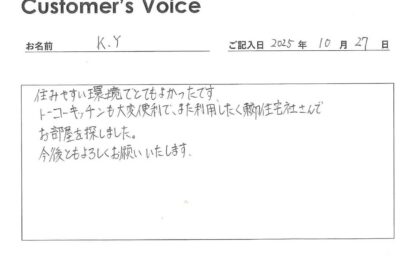 Customer's Voice
お名前 K.Y ご記入日 2025 年 10 月 27 日
住みやすい環境でとてもよかったです。
トーコーキッチンも大変便利で、また利用したく東郊住宅社さんで
お部屋を探しました。
今後ともよろしくお願いいたします。